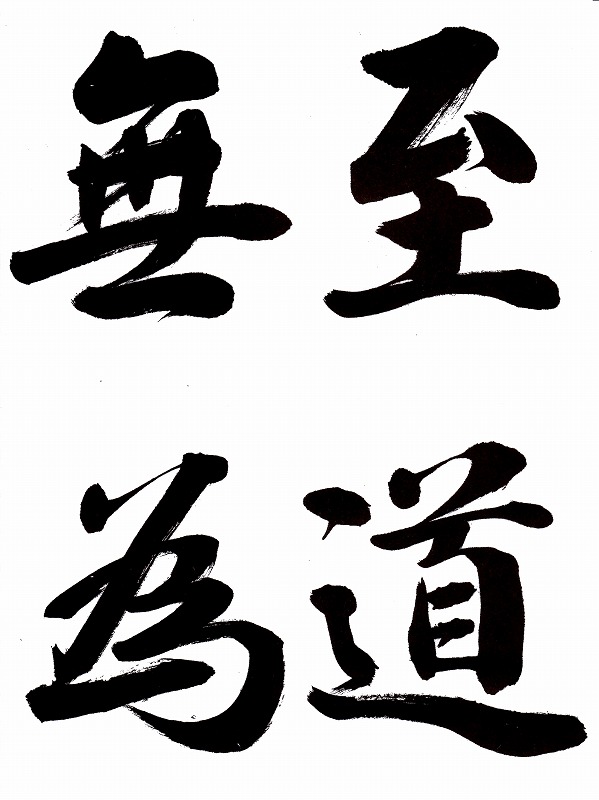 至道
無為